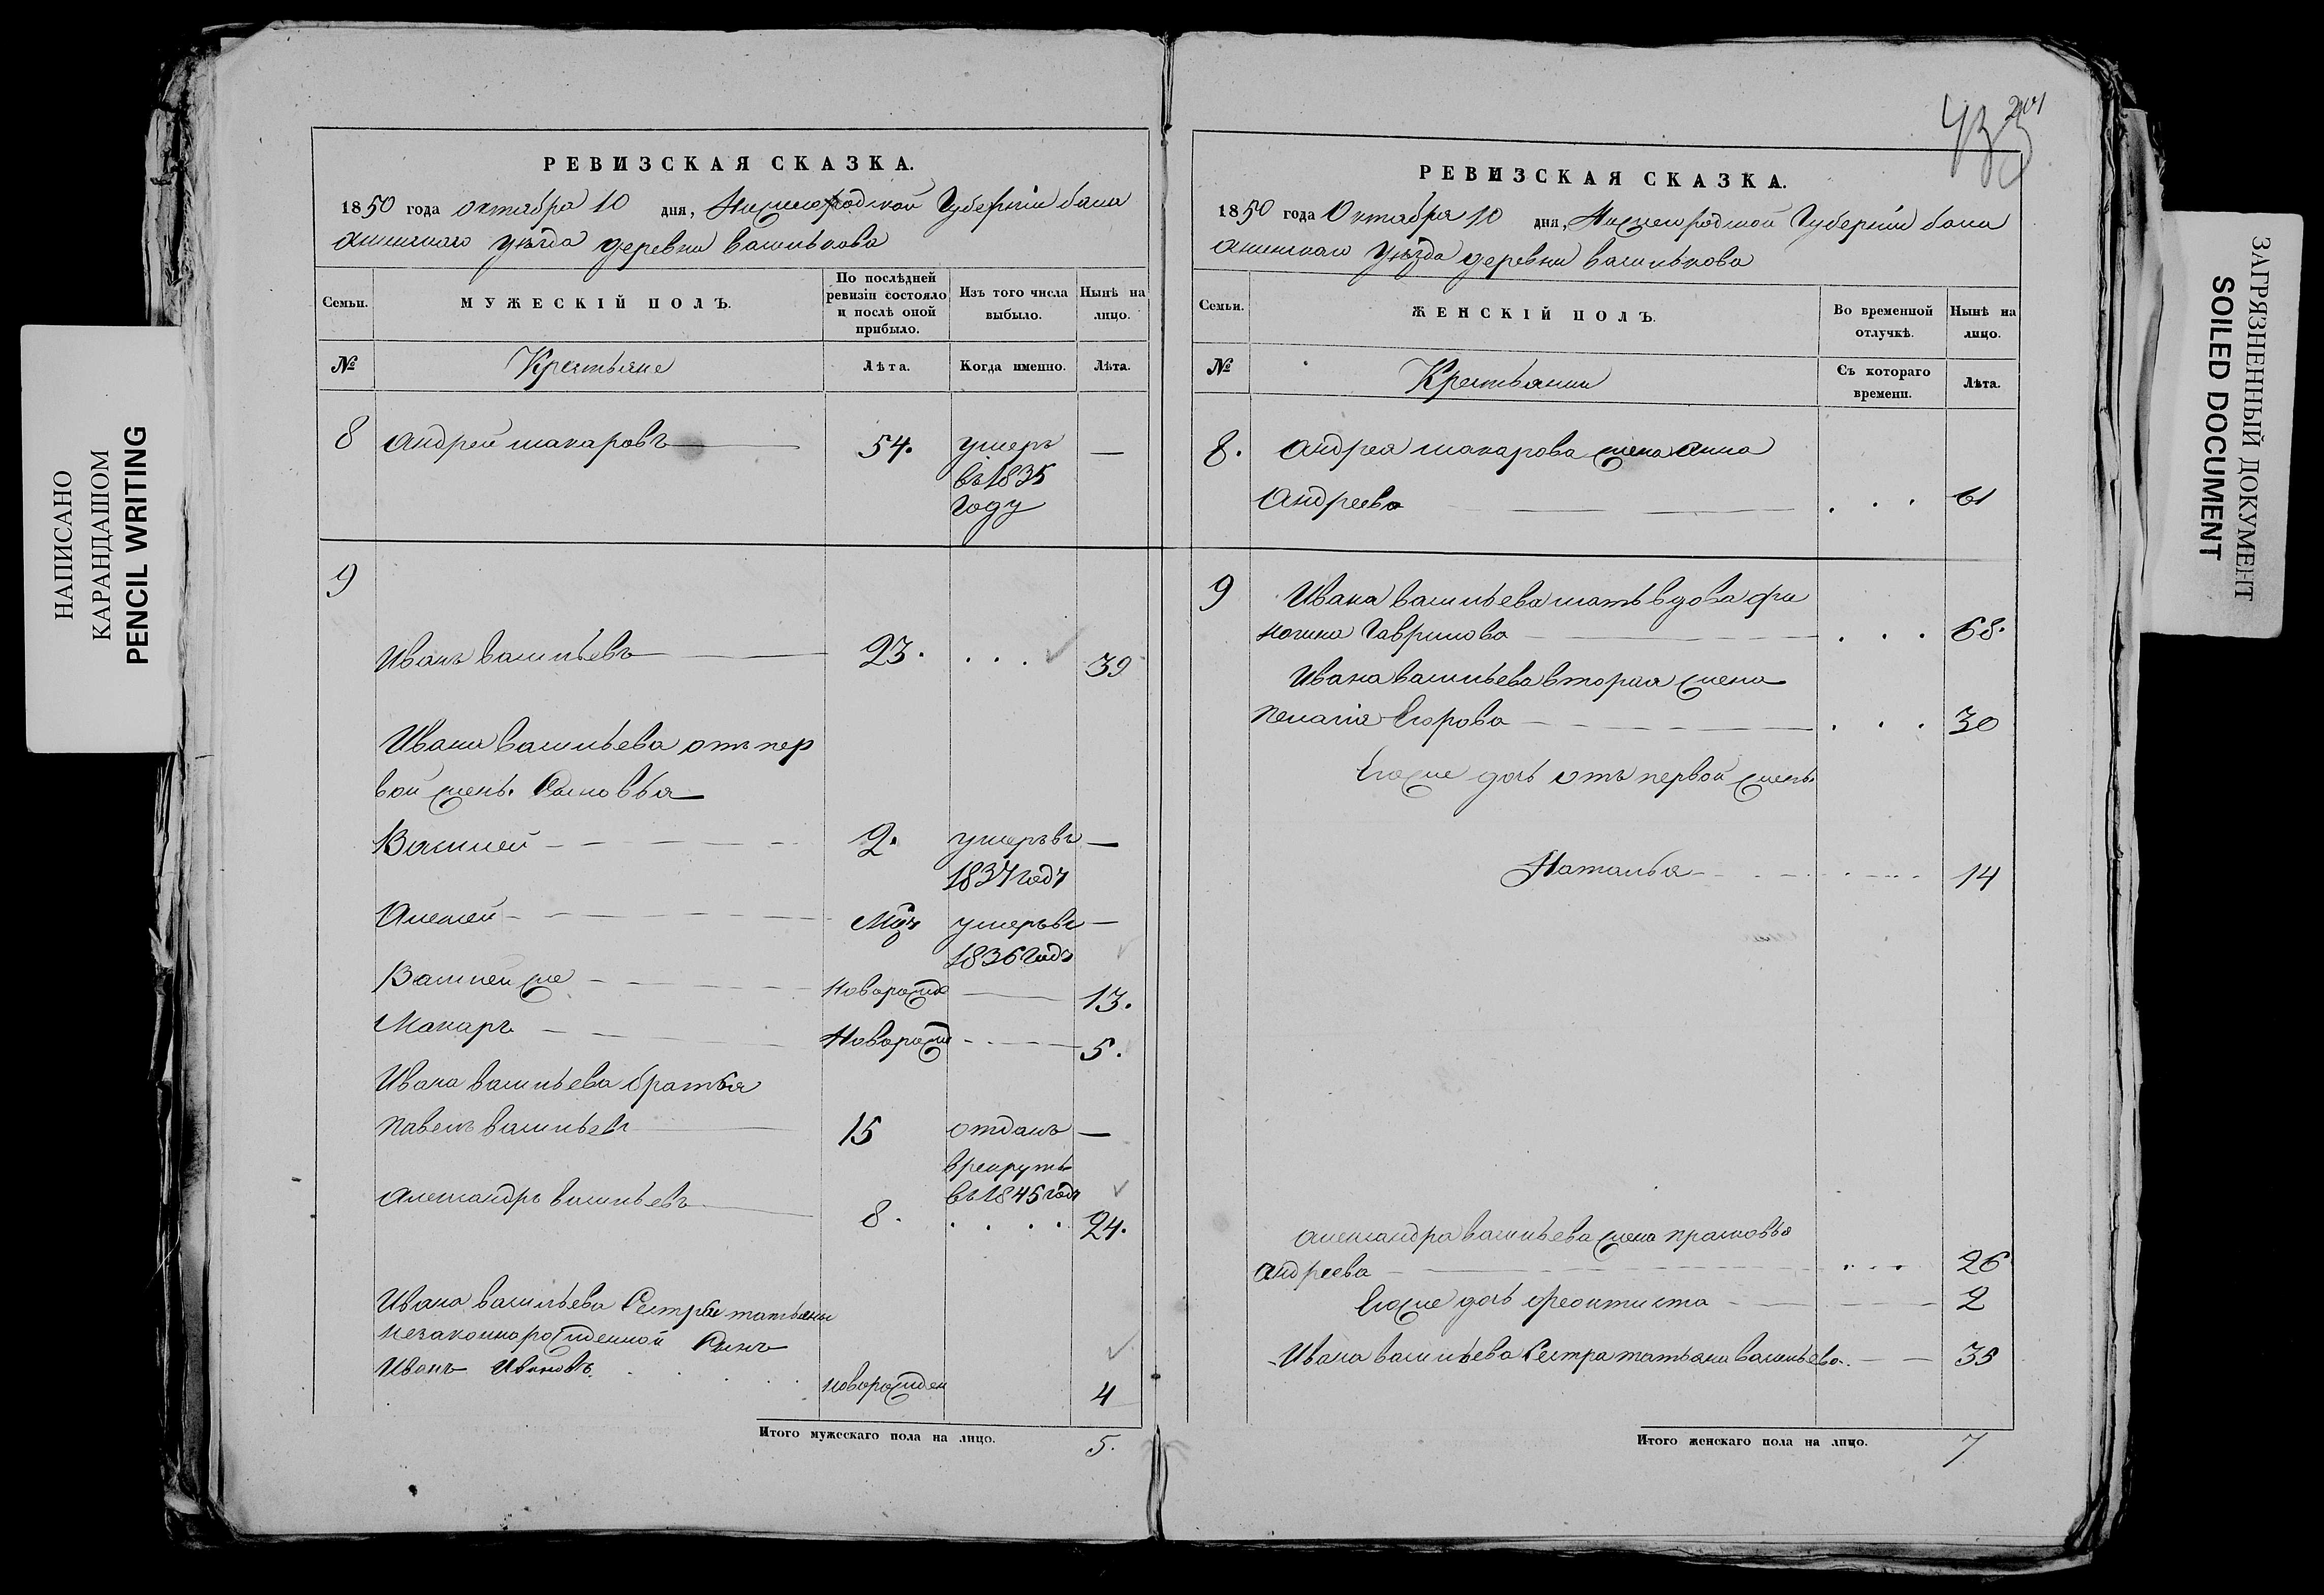 НАПИСАНО
КАРАНДАШОМ
PENCIL WRITING
РЕВИЗСКАЯ СКАЗКА.
1850 года октября 10 дня, Нижегородской Губерніи бала
хнинскаго уѣзда деревни Василькова
Семьи.
МУЖЕСКІЙ ПОЛЪ.
По послѣдней
ревизіи состояло
и послѣ оной
прибыло.
Изъ того числа
выбыло.
Нынѣ на
лицо.
№
Крестьяне
Лѣта.
Когда именно.
Лѣта.
8 Андрей макаровъ 54. умеръ —
въ 1835
году
9
Иванъ васильевъ 23. . . . 39
Ивана васильева отъ пер
вой жены Сыновья
Василей 2. умеръ въ —
1837 году
Алексей умеръ въ —
1836 году
Василей же новорожд 13.
Макаръ Новорожд 5.
Ивана васильева братья
павелъ васильевъ 15 отданъ —
врекруты
въ 1845 году
Александръ васильевъ 8. . . . . 24.
Ивана васильева Сестры татьяны
незаконнорожденной Сынъ
Иванъ Ивановъ новорожден 4
Итого мужескаго пола на лицо. 5.
201
433
РЕВИЗСКАЯ СКАЗКА.
1850 года Октября 10 дня, Нижегородской Губерніи бала
хнинскаго уѣзда деревни василькова
Семьи.
ЖЕНСКІЙ ПОЛЪ.
Во временной
отлучкѣ.
Нынѣ на
лицо.
№
Крестьянки
Съ котораго
времени.
Лѣта.
8. Андрея макарова жена Анна
Андреева . . . 61
9 Ивана васильева мать вдова фи
ногина Гаврилова . . . 68.
Ивана васильева вторая жена
пелагія Егорова . . . 30
Егоже дочь отъ первой жены
Наталья 14
Александра васильева жена прасковья
Андреева . . . . 26
Егоже дочь феоктиста 2
Ивана васильева Сестра татьяна васильева 35
Итого женскаго пола на лицо. 7
ЗАГРЯЗНЕННЫЙ ДОКУМЕНТ
SOILED DOCUMENT